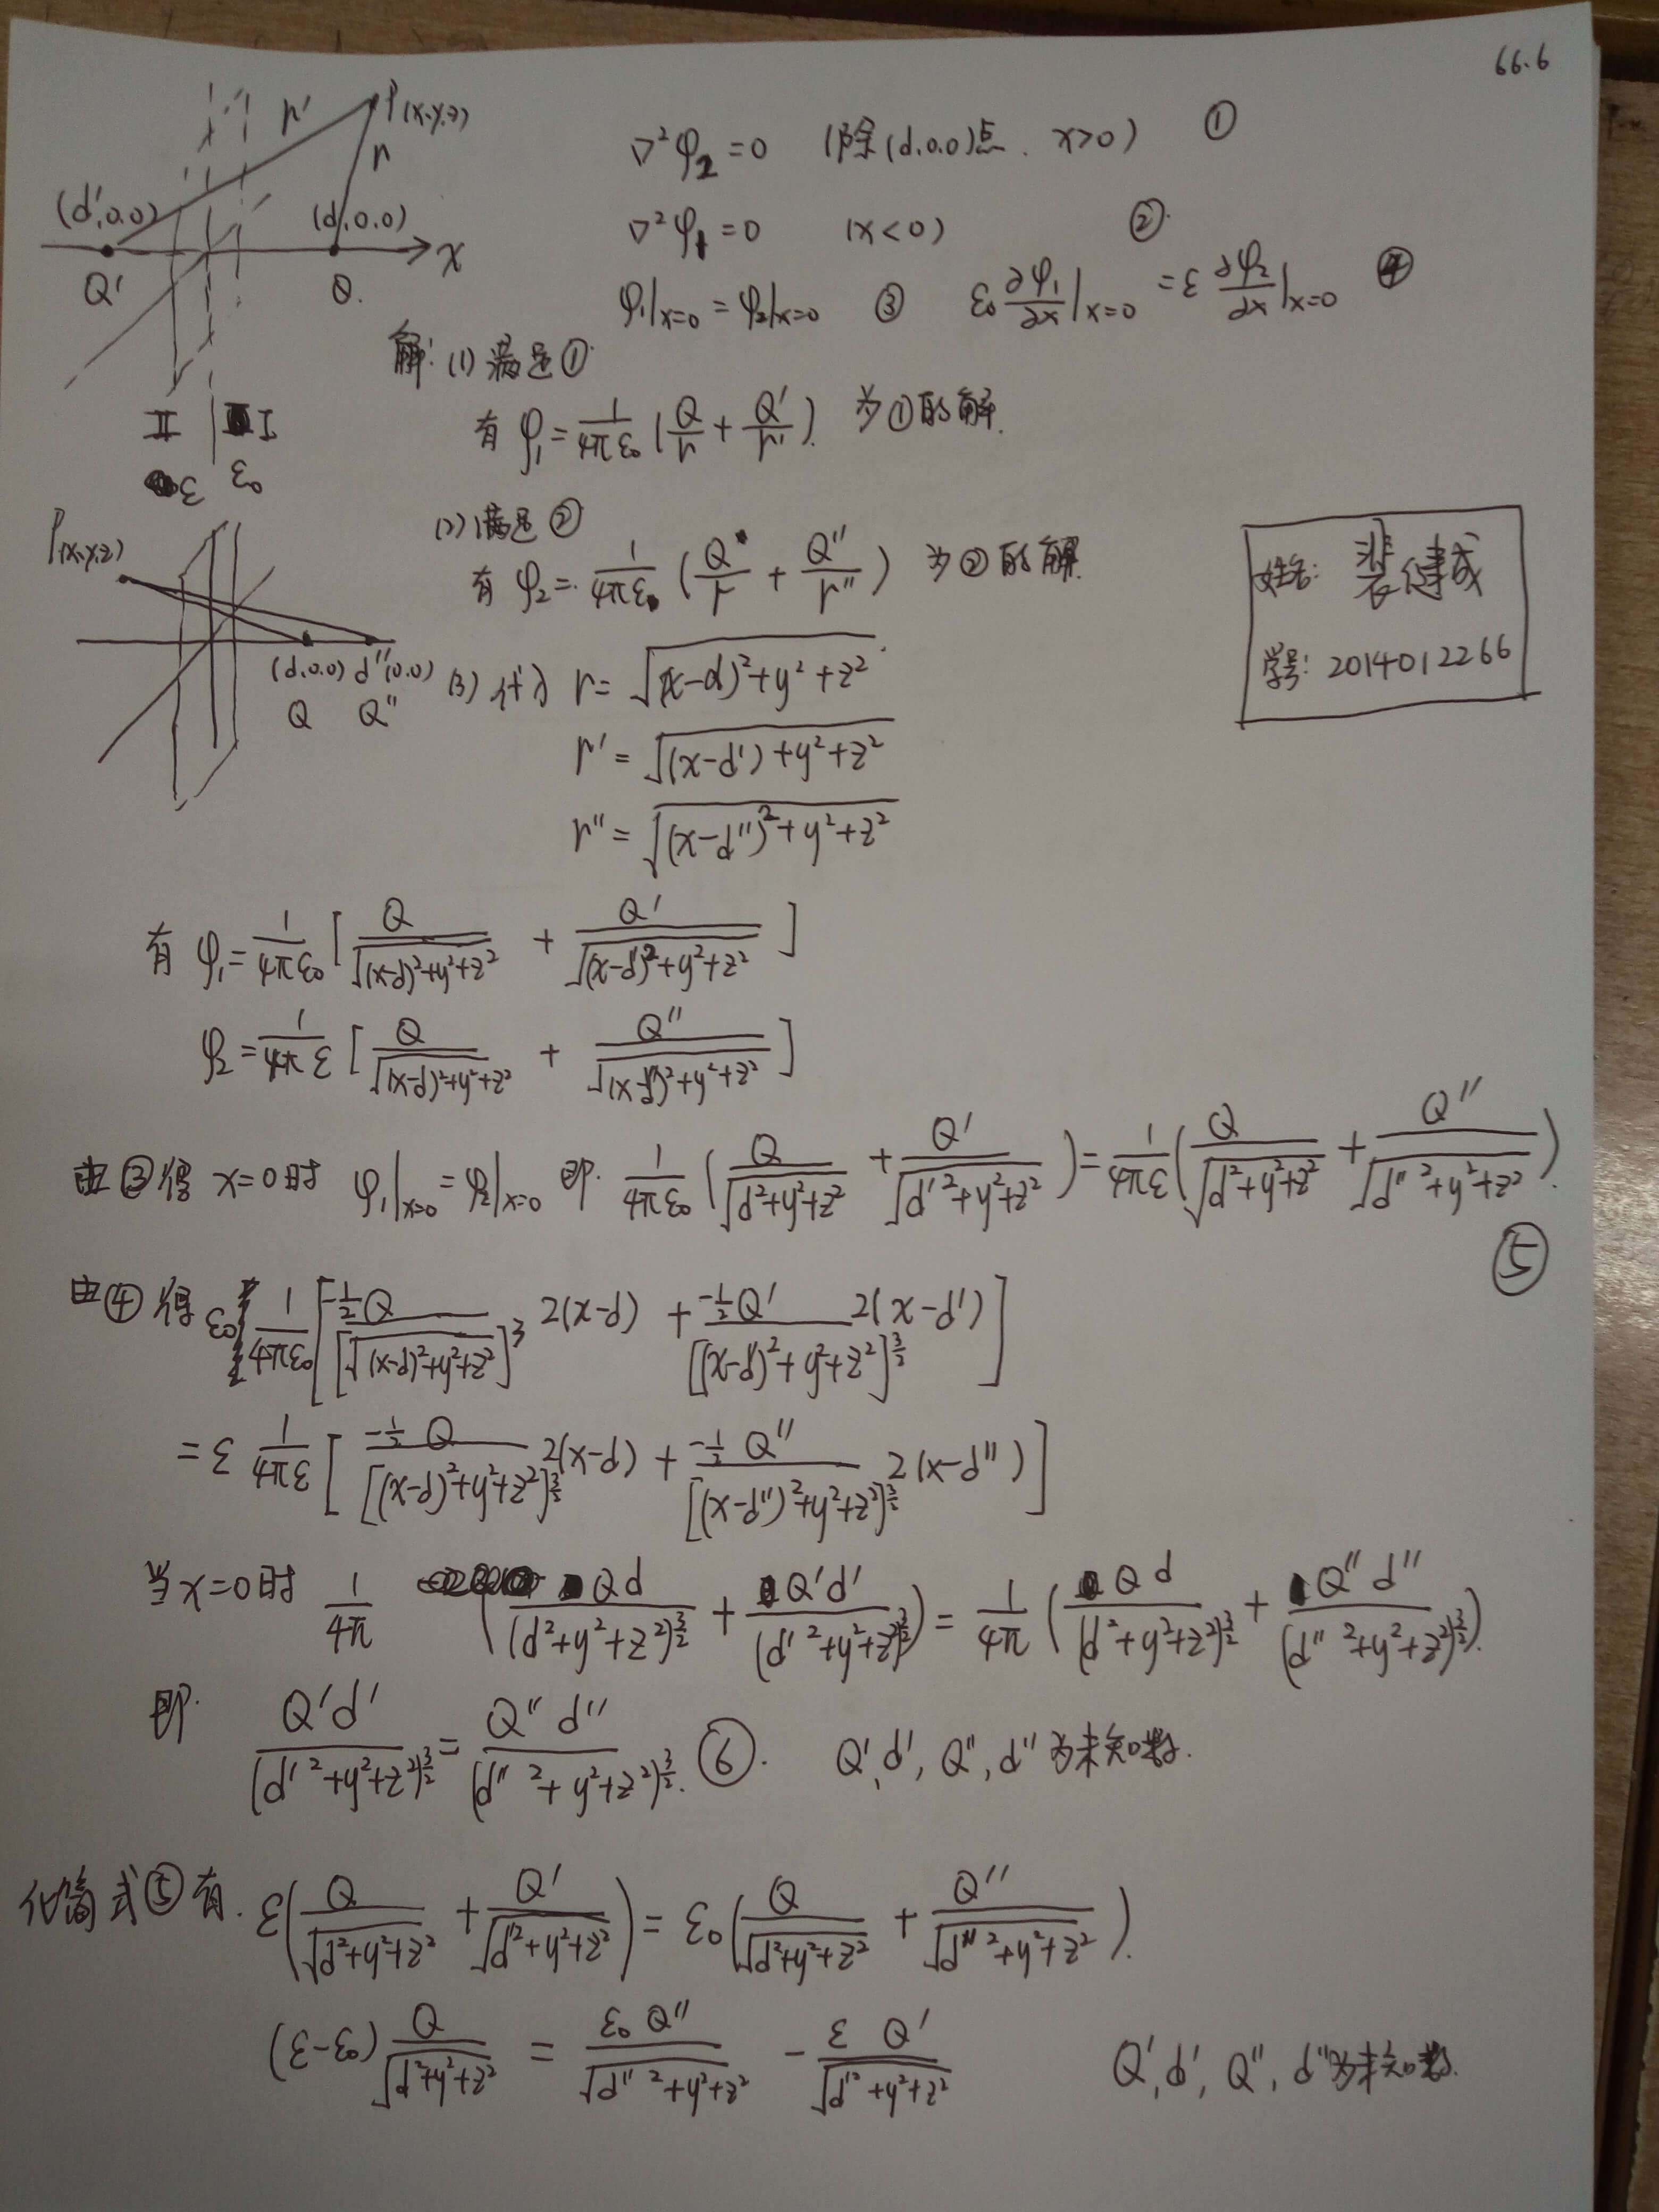 66.6
P(x,y,z)
r'
r
(d',0,0)
(d,0,0)
x
Q'
Q.
∇²φ₂=0 (除(d,0,0)点、x>0) ①
∇²φ₁=0 (x<0) ②
φ₁|x=0 = φ₂|x=0 ③ ε₀ ∂φ₁/∂x|x=0 = ε ∂φ₂/∂x|x=0 ④
II | I
ε ε₀
解: (1) 满足①
有 φ₁ = 1/4πε₀ (Q/r + Q'/r'). 为①的解.
(2) 满足②
有 φ₂ = 1/4πε (Q/r + Q''/r'') 为②的解.
P(x,y,z)
(d,0,0) d''(0,0)
Q Q''
姓名: 裴健成
学号: 2014012266
(3) 代入 r = √((x-d)²+y²+z²)
r' = √((x-d')+y²+z²)
r'' = √((x-d'')²+y²+z²)
有 φ₁ = 1/4πε₀ [Q/√((x-d)²+y²+z²) + Q'/√((x-d')²+y²+z²)]
φ₂ = 1/4πε [Q/√((x-d)²+y²+z²) + Q''/√((x-d'')²+y²+z²)]
由③得 x=0时 φ₁|x=0 = φ₂|x=0 即 1/4πε₀ (Q/√(d²+y²+z²) + Q'/√(d'²+y²+z²)) = 1/4πε (Q/√(d²+y²+z²) + Q''/√(d''²+y²+z²)).
⑤
由④得 ε₀ 1/4πε₀ [-½Q/[√((x-d)²+y²+z²)]³ 2(x-d) + -½Q'/[(x-d')²+y²+z²]^(3/2) 2(x-d')]
= ε 1/4πε [-½Q/[(x-d)²+y²+z²]^(3/2) 2(x-d) + -½Q''/[(x-d'')²+y²+z²]^(3/2) 2(x-d'')]
当x=0时 1/4π (Qd/(d²+y²+z²)^(3/2) + Q'd'/(d'²+y²+z²)^(3/2)) = 1/4π (Qd/(d²+y²+z²)^(3/2) + Q''d''/(d''²+y²+z²)^(3/2)).
即 Q'd'/(d'²+y²+z²)^(3/2) = Q''d''/(d''²+y²+z²)^(3/2). ⑥. Q',d',Q'',d''为未知数.
化简式⑤有. ε(Q/√(d²+y²+z²) + Q'/√(d'²+y²+z²)) = ε₀(Q/√(d²+y²+z²) + Q''/√(d''²+y²+z²)).
(ε-ε₀) Q/√(d²+y²+z²) = ε₀Q''/√(d''²+y²+z²) - εQ'/√(d'²+y²+z²) Q',d',Q'',d''为未知数.